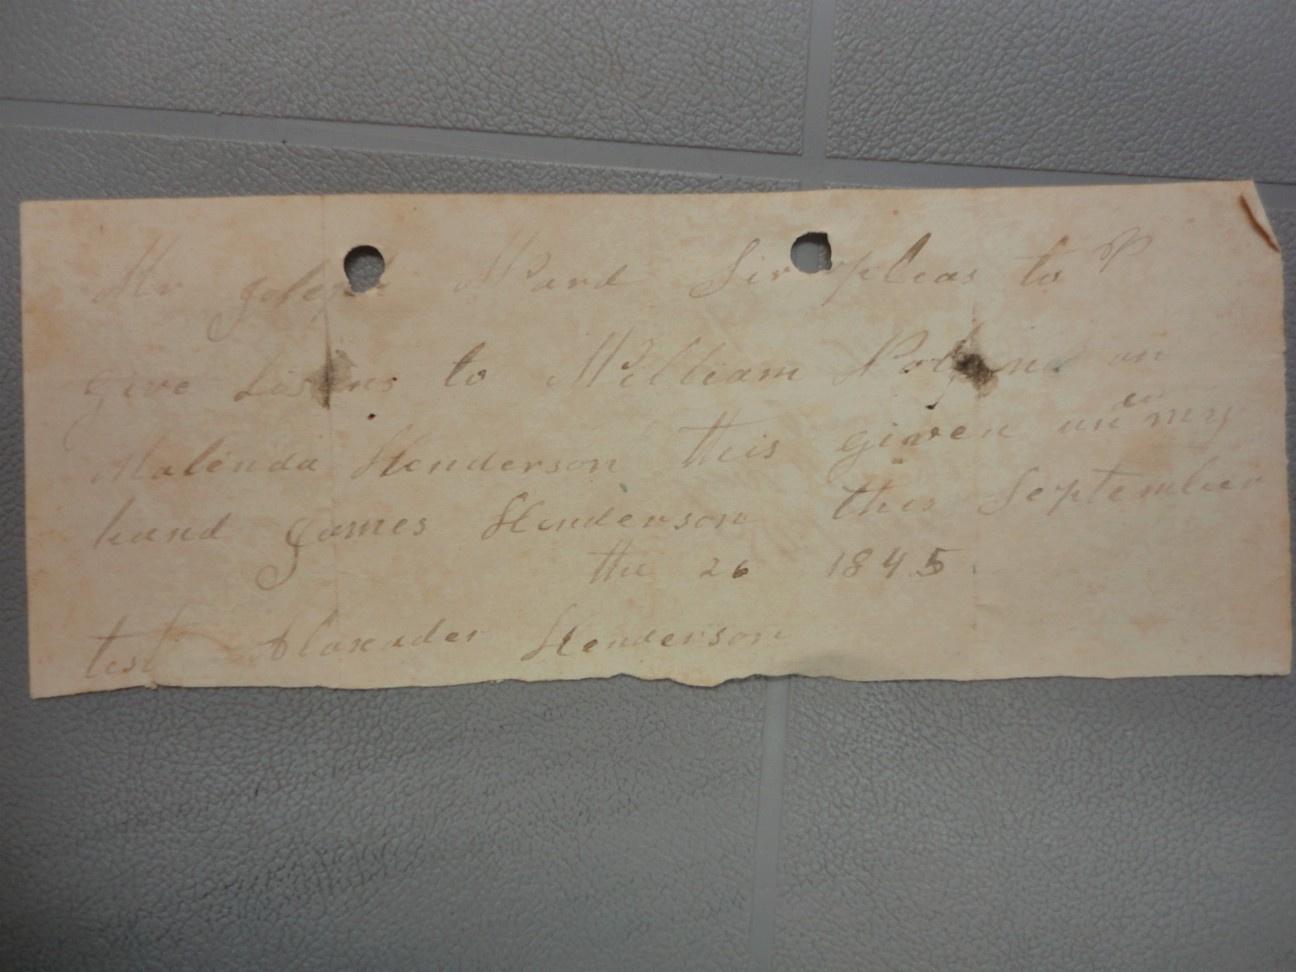 Mr Joseph Ward Sir pleas to
give Lisens to William an
Malinda Henderson this given under my
hand James Henderson this September
the 26 1845
test Alaxader Henderson